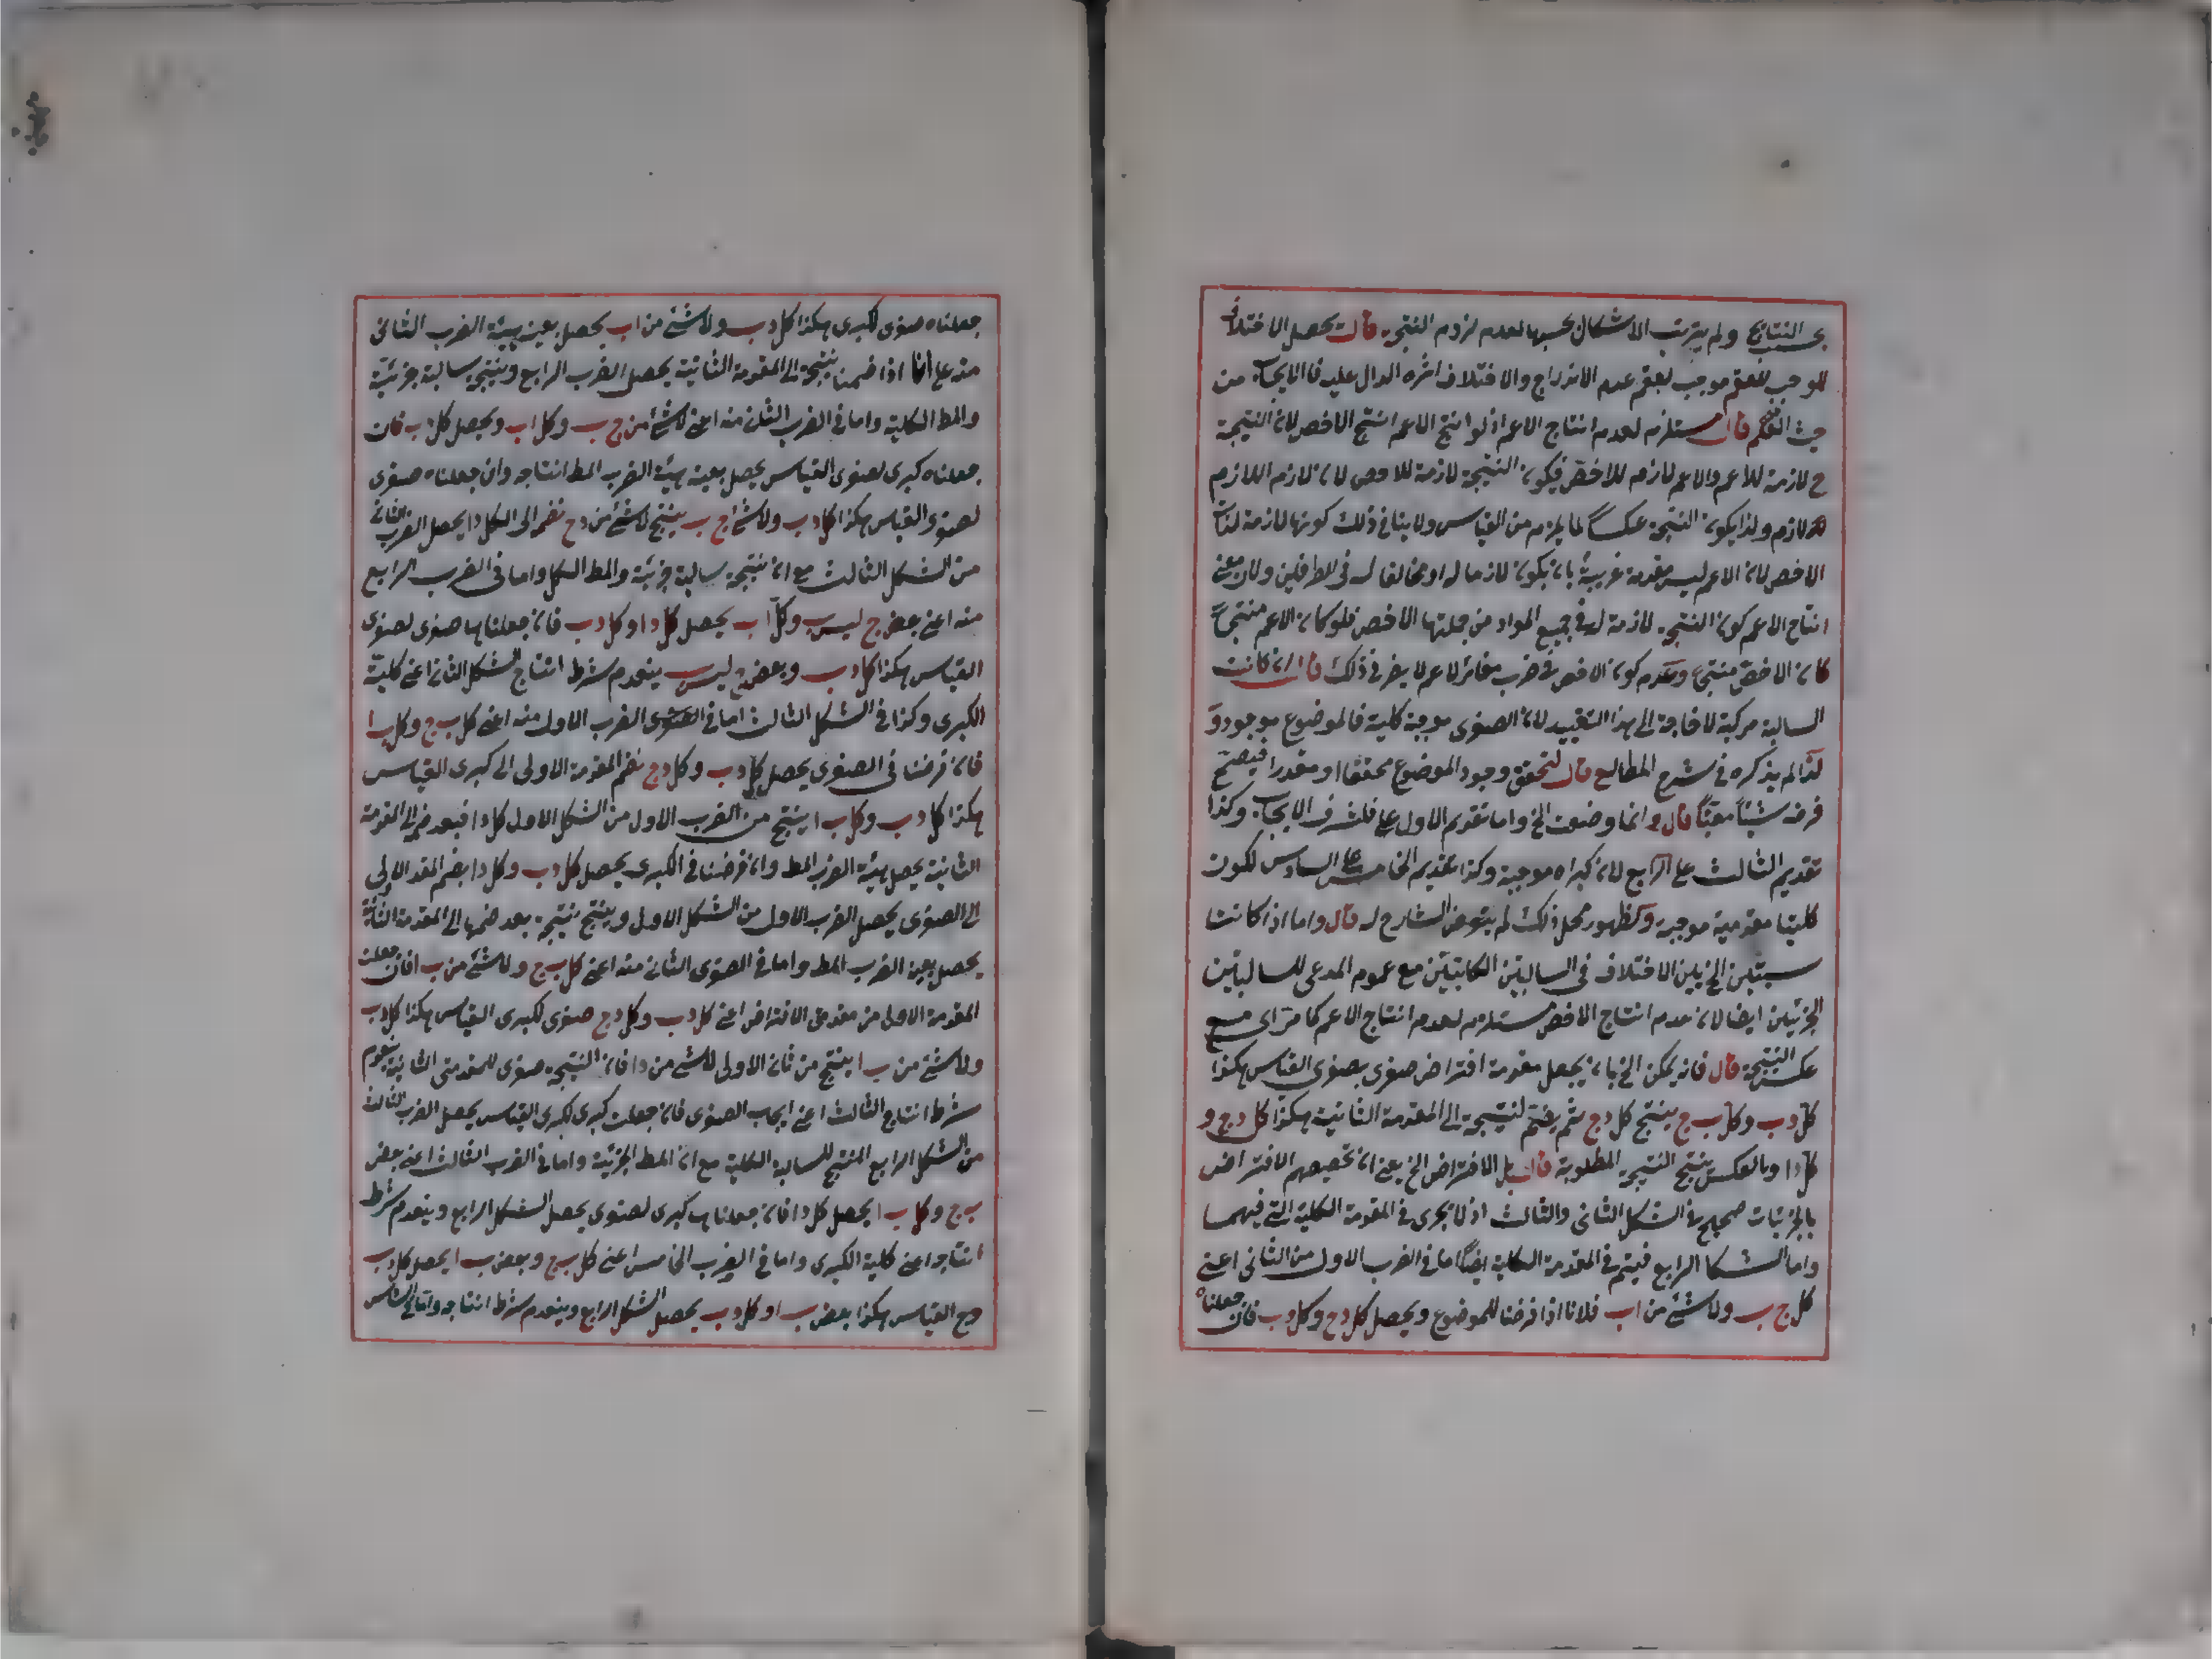 بحسب النتايج ولم يترتب الاشكال بحسبها لعدم لزوم النتيجة قال يحصل الاختلاف
الموجب للعقم موجب لعقم عدم الاندراج والاختلاف اثره الدال عليه فالايجاب من
حيث العقم قال مستلزم لعدم انتاج الاعم اذ لو انتج الاعم انتج الاخص لان النتيجة
ح لازمة للاعم والاعم لازم للاخص فيكون النتيجة لازمة للاخص لان لازم اللازم
لازم ولذا يكون النتيجة عكساً لما يلزم من القياس ولا ينافي ذلك كونها لازمة لذات
الاخص لان الاعم ليس مقدمة غريبة بان يكون لازما له او مخالفا له في الطرفين ولان معنى
انتاج الاعم كون النتيجة لازمة له في جميع المواد من جملتها الاخص فلو كان الاعم منتجاً
كان الاخص منتجاً وعدم كون الاخص في ضرب مغائر للاعم لا يضر في ذلك قال ان كانت
السالبة مركبة لا حاجة الى هذا التقييد لان الصغرى موجبة كلية فالموضوع موجود و
لذا لم يذكره في شرح المطالع قال لتحقق وجود الموضوع محققا او مقدرا فيصح
فرضه شيئاً معيناً قال وانما وضعت الخ واما تقديم الاول على فلشرف الايجاب وكذا
تقديم الثالث على الرابع لان كبراه موجبة وكذا تقديم الخامس على السادس لكون
كليتا مقدمتيه موجبة ولظهور محل ذلك لم يتعرض الشارح له قال واما اذا كانتا
سالبتين الخ يبين الاختلاف في السالبتين الكليتين مع عموم المدعى للسالبتين
الجزئيتين ايضا لان عدم انتاج الاخص مستلزم لعدم انتاج الاعم كما مر اى مع
عكس النتيجة قال فانه يمكن الخ بان يجعل مقدمة افتراض صغرى بصغرى القياس هكذا
كل د ب وكل ب ج ينتج كل د ج ثم يضم لنتيجة الى المقدمة الثانية هكذا كل د ج و
كل د ا وبالعكس ينتج النتيجة المطلوبة قال بل الافتراض الخ يعنى ان تخصيصهم الافتراض
بالجزئيات صحيح في الشكل الثاني والثالث اذ لا يجرى في المقدمة الكلية التي فيهما
واما الشكل الرابع فيتم في المقدمة الكلية ايضاً اما في الضرب الاول من الثاني اعنى
كل ج ب ولا شئ من ا ب فلانا اذا فرضنا للموضوع ويحصل كل د ج وكل د ب فان جعلناه
جعلناه صغرى لكبرى هكذا كل د ب ولا شئ من ا ب يحصل بعينه هيئة الضرب الثاني
منه على انا اذا ضممنا نتيجة الى المقدمة الثانية يحصل الضرب الرابع وينتج سالبة جزئية
والمط الكلية واما في الضرب الثاني منه اعنى لا شئ من ج ب وكل ا ب ويحصل كل د ب فان
جعلناه كبرى لصغرى القياس يحصل بعينه هيئة الضرب المط انتاجه وان جعلناه صغرى
لصغرى القياس هكذا كل د ب ولا شئ ج ب ينتج لا شئ من د ج نضم الى الكل د ا يحصل الضرب الثاني
من الشكل الثالث مع ان نتيجة سالبة جزئية والمط الكل واما في الضرب الرابع
منه اعنى بعض ج ليس ب وكل ا ب يحصل كل د ا وكل د ب فان جعلناها صغرى لصغرى
القياس هكذا كل د ب وبعض ج ليس ب ينعدم شرط انتاج الشكل الثاني اعنى كلية
الكبرى وكذا في الشكل الثالث اما في الصغرى الضرب الاول منه اعنى كل ب ج وكل ب ا
فان فرضنا في الصغرى يحصل كل د ب وكل د ج نضم المقدمة الاولى الى كبرى القياس
هكذا كل د ب وكل ب ا ينتج من الضرب الاول من الشكل الاول كل د ا فبعد ضم الى المقدمة
الثانية يحصل هيئة الضرب المط وان فرضنا في الكبرى يحصل كل د ب وكل د ا بضم المقد الاولى
الى الصغرى يحصل الضرب الاول من الشكل الاول وينتج نتيجة بعد ضمها الى المقدمة الثانية
يحصل بعين الضرب المط واما في الصغرى الثاني منه اعنى كل ب ج ولا شئ من ب ا فان جعلت
المقدمة الاولى من مقدمتى الافتراض اعنى كل د ب وكل د ج صغرى لكبرى القياس هكذا كل د ب
ولا شئ من ب ا ينتج من ثاني الاولى لا شئ من د ا فان النتيجة صغرى للمقدمتى الثانية ينعدم
شرط انتاج الثالث اعنى ايجاب الصغرى فان جعلت كبرى لكبرى القياس يحصل الضرب الثالث
من الشكل الرابع المنتج للسالبة الكلية مع ان المط الجزئية واما في الضرب الثالث اعنى بعض
ب ج وكل ب ا يحصل كل د ا فان جعلناها كبرى لصغرى يحصل الشكل الرابع وينعدم شرط
انتاجه اعنى كلية الكبرى واما في الضرب الخامس اعنى كل ب ج وبعض ب ا يحصل كل د ب
وح القياس هكذا بعض ب ا وكل د ب يحصل الشكل الرابع وينعدم شرط انتاجه واما في السادس